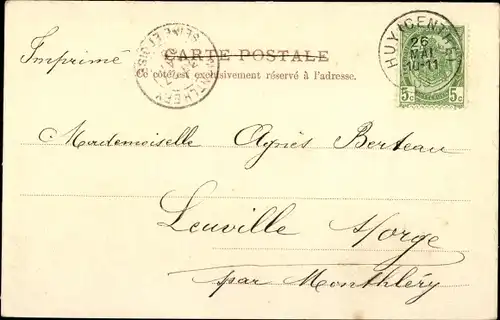 CARTE POSTALE
Ce côté est exclusivement réservé à l'adresse.
Imprimé
HUY (CENTRE)
26
MAI
10-11
5c 5c
Mademoiselle Agnès Berteau
Leuville s/orge
par Monthléry